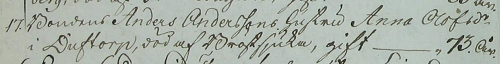 17. Bondens Anders Anderssons hustru Anna Olofsdr.
i Duftorp, död af Bröstsjuka, gift ——— „ 73. År